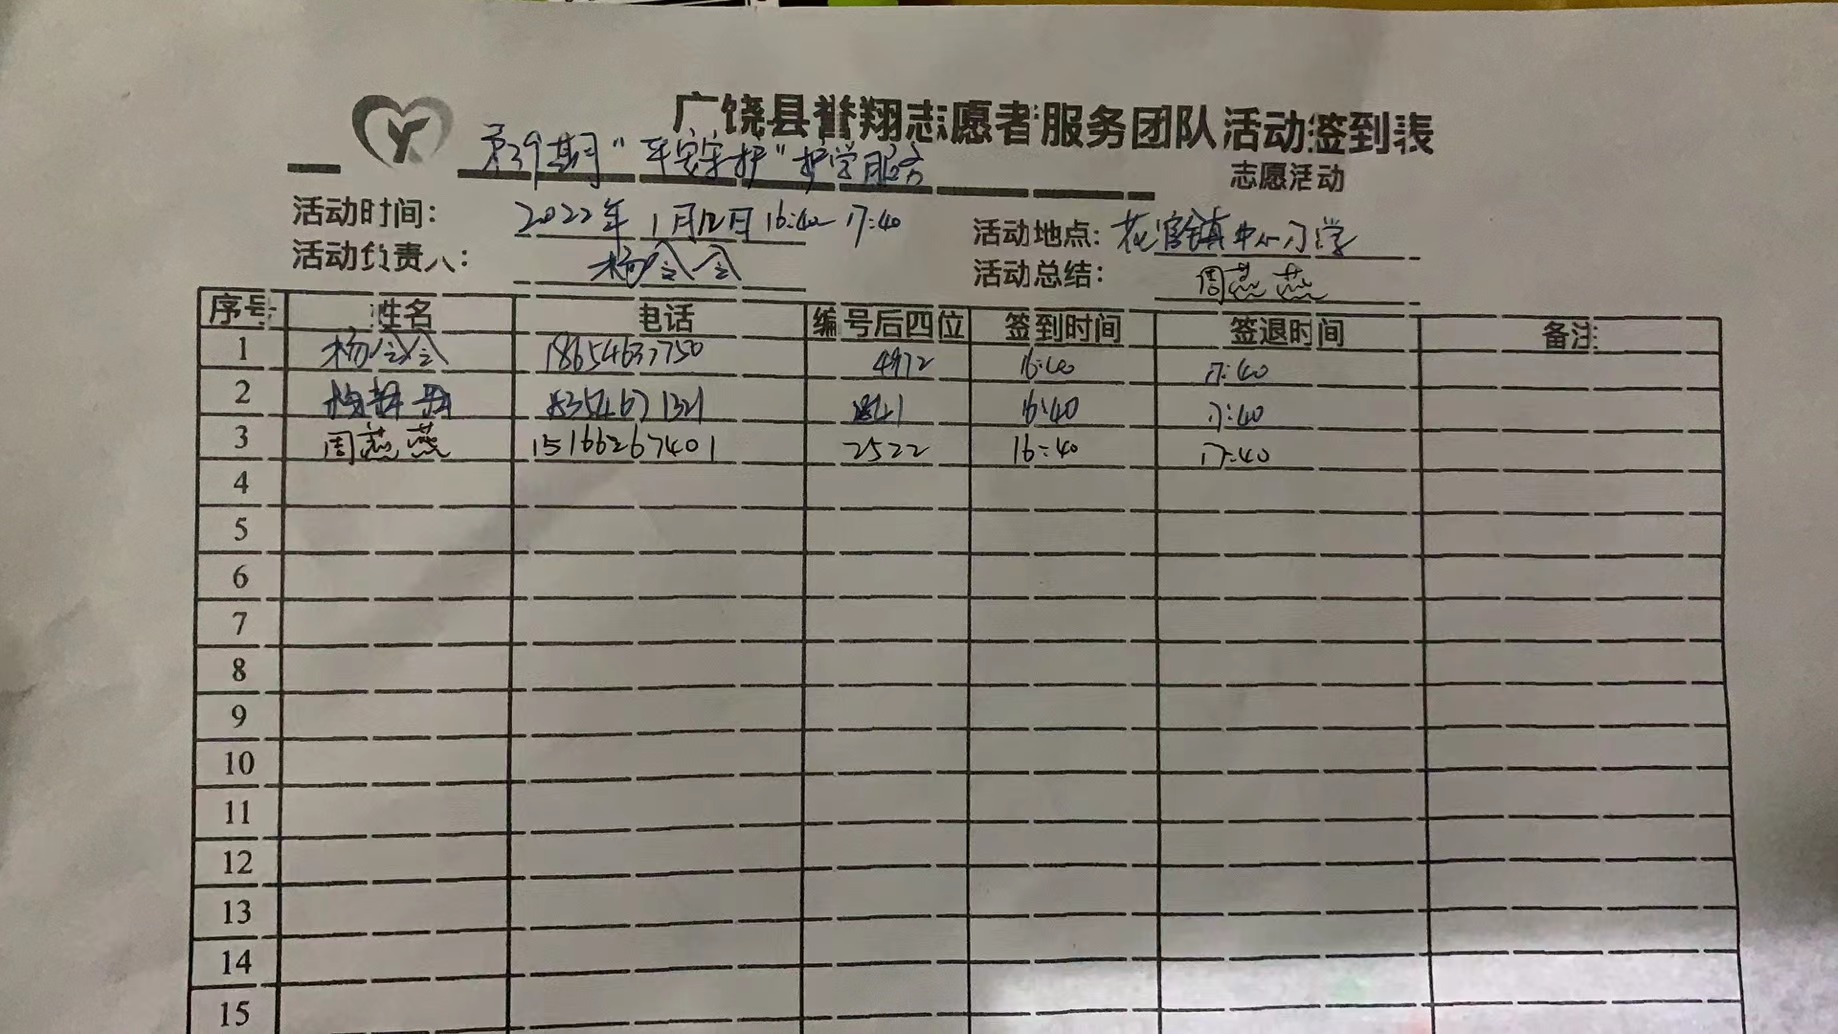 广饶县誉翔志愿者服务团队活动签到表
第39期"平安守护"护学服务 志愿活动
活动时间： 2022年1月12日16:40-17:40 活动地点：花官镇中心小学
活动负责人： 杨会会 活动总结： 周燕燕
序号 姓名 电话 编号后四位 签到时间 签退时间 备注
1 杨会会 18654637750 4972 16:40 17:40
2 16:40 17:40
3 周燕燕 15166267401 2522 16:40 17:40
4
5
6
7
8
9
10
11
12
13
14
15